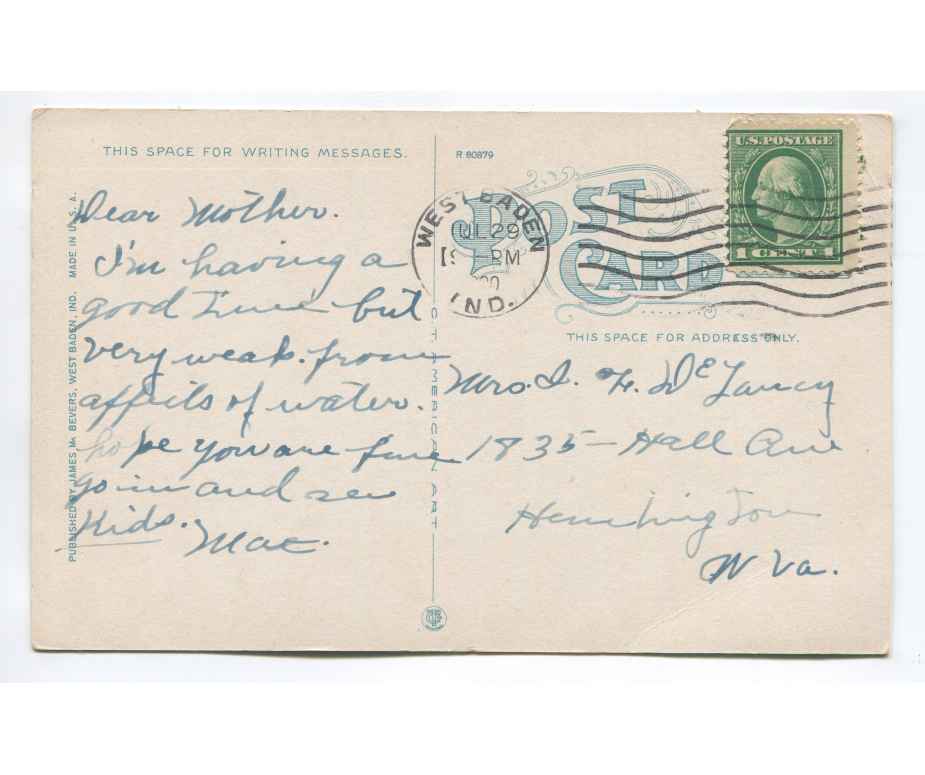 THIS SPACE FOR WRITING MESSAGES.
Dear Mother.
I'm having a
good time but
very weak. from
affects of water.
hope you are fine
go in and see
Kids.
Mae.
PUBLISHED BY JAMES M. BEVERS, WEST BADEN, IND. MADE IN U.S.A.
AMERICAN ART
R.80879
POST
CARD
WEST BADEN
JUL 29
9 - PM
IND.
U.S. POSTAGE
1 CENT 1
THIS SPACE FOR ADDRESS ONLY.
Mrs. I. F. DeLancy
1835 - Hall Ave
Hunington
W Va.